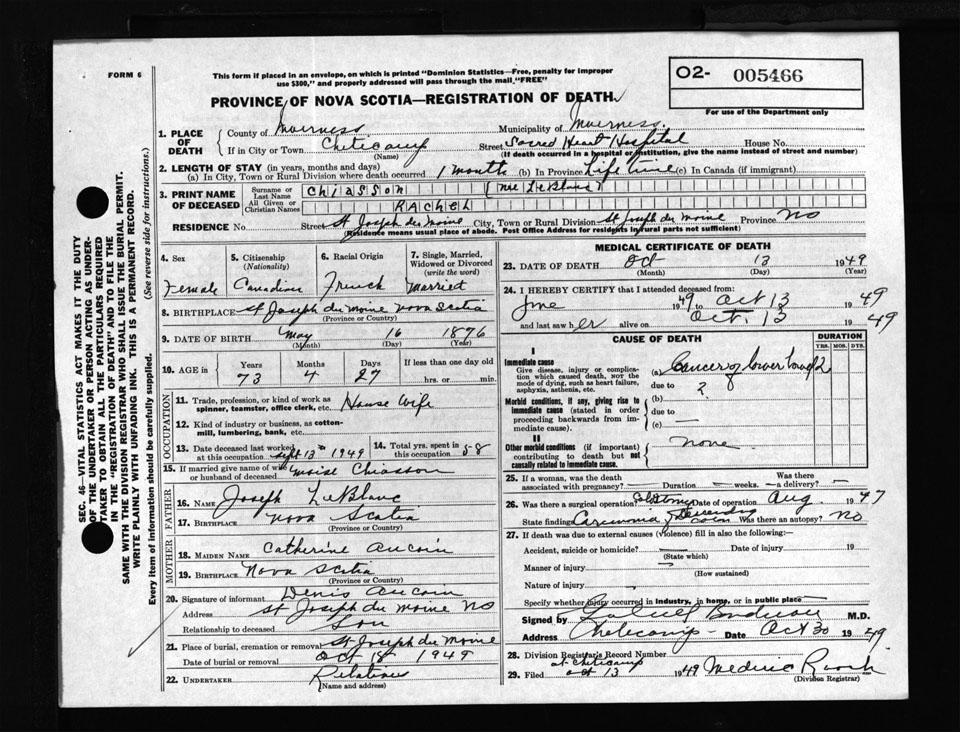 FORM 6
This form if placed in an envelope, on which is printed "Dominion Statistics—Free, penalty for improper
use $300," and properly addressed will pass through the mail "FREE"
O2- 005466
For use of the Department only
PROVINCE OF NOVA SCOTIA—REGISTRATION OF DEATH
1. PLACE OF DEATH
County of Inverness Municipality of Inverness
If in City or Town Cheticamp Street Sacred Heart Hospital House No.
(Name) (If death occurred in a hospital or institution, give the name instead of street and number)
2. LENGTH OF STAY (in years, months and days)
(a) In City, Town or Rural Division where death occurred 1 month (b) In Province Life time (c) In Canada (if immigrant)
3. PRINT NAME OF DECEASED
Surname or Last Name Chiasson (nee LeBlanc)
All Given or Christian Names RACHEL
RESIDENCE No. Street St Joseph du Moine City, Town or Rural Division St Joseph du Moine Province NS
(Residence means usual place of abode. Post Office Address for residents in rural parts not sufficient)
4. Sex Female
5. Citizenship (Nationality) Canadian
6. Racial Origin French
7. Single, Married, Widowed or Divorced (write the word) Married
8. BIRTHPLACE St Joseph du Moine Nova Scotia
(Province or Country)
9. DATE OF BIRTH May 16 1876
(Month) (Day) (Year)
10. AGE in Years Months Days If less than one day old
73 4 27 hrs. or min.
OCCUPATION
11. Trade, profession, or kind of work as
spinner, teamster, office clerk, etc. House Wife
12. Kind of industry or business, as cotton-
mill, lumbering, bank, etc.
13. Date deceased last worked at this occupation Sept 13th 1949
14. Total yrs. spent in this occupation 58
15. If married give name of wife
or husband of deceased Moise Chiasson
FATHER
16. NAME Joseph LeBlanc
17. BIRTHPLACE Nova Scotia
(Province or Country)
MOTHER
18. MAIDEN NAME Catherine Aucoin
19. BIRTHPLACE Nova Scotia
(Province or Country)
20. Signature of informant Denis Aucoin
Address St Joseph du Moine NS
Relationship to deceased Son
21. Place of burial, cremation or removal St Joseph du Moine
Date of burial or removal Oct 15 1949
22. UNDERTAKER Relatives
(Name and address)
MEDICAL CERTIFICATE OF DEATH
23. DATE OF DEATH Oct 13 1949
(Month) (Day) (Year)
24. I HEREBY CERTIFY that I attended deceased from:
June 1949 to Oct 13 1949
and last saw her alive on Oct. 13 1949
CAUSE OF DEATH
DURATION
YRS. MOS. DYS.
I
Immediate cause
Give disease, injury or complica-
tion which caused death, NOT the
mode of dying, such as heart failure,
asphyxia, asthenia, etc.
(a) Cancer of lower bowel 2
due to ?
Morbid conditions, if any, giving rise to
immediate cause (stated in order
proceeding backwards from im-
mediate cause).
(b)
due to
(c)
II
Other morbid conditions (if important)
contributing to death but not
causally related to immediate cause.
None
25. If a woman, was the death
associated with pregnancy? Duration weeks Was there a delivery?
26. Was there a surgical operation? Colostomy Date of operation Aug 1947
State findings Carcinoma of Descending Colon Was there an autopsy? No
27. If death was due to external causes (violence) fill in also the following:—
Accident, suicide or homicide? Date of injury 19
(State which)
Manner of injury
(How sustained)
Nature of injury
Specify whether injury occurred in industry, in home, or in public place
Signed by Gabriel Boudreau M.D.
Address Cheticamp Date Oct 30 1949
28. Division Registrar's Record Number
29. Filed at Cheticamp Oct 13 1949 Mederic
(Division Registrar)
SEC. 46—VITAL STATISTICS ACT MAKES IT THE DUTY
OF THE UNDERTAKER OR PERSON ACTING AS UNDER-
TAKER TO OBTAIN ALL THE PARTICULARS REQUIRED
IN THE "REGISTRATION OF DEATH" AND TO FILE THE
SAME WITH THE DIVISION REGISTRAR WHO SHALL ISSUE THE BURIAL PERMIT.
WRITE PLAINLY WITH UNFADING INK. THIS IS A PERMANENT RECORD.
Every item of information should be carefully supplied. (See reverse side for instructions.)